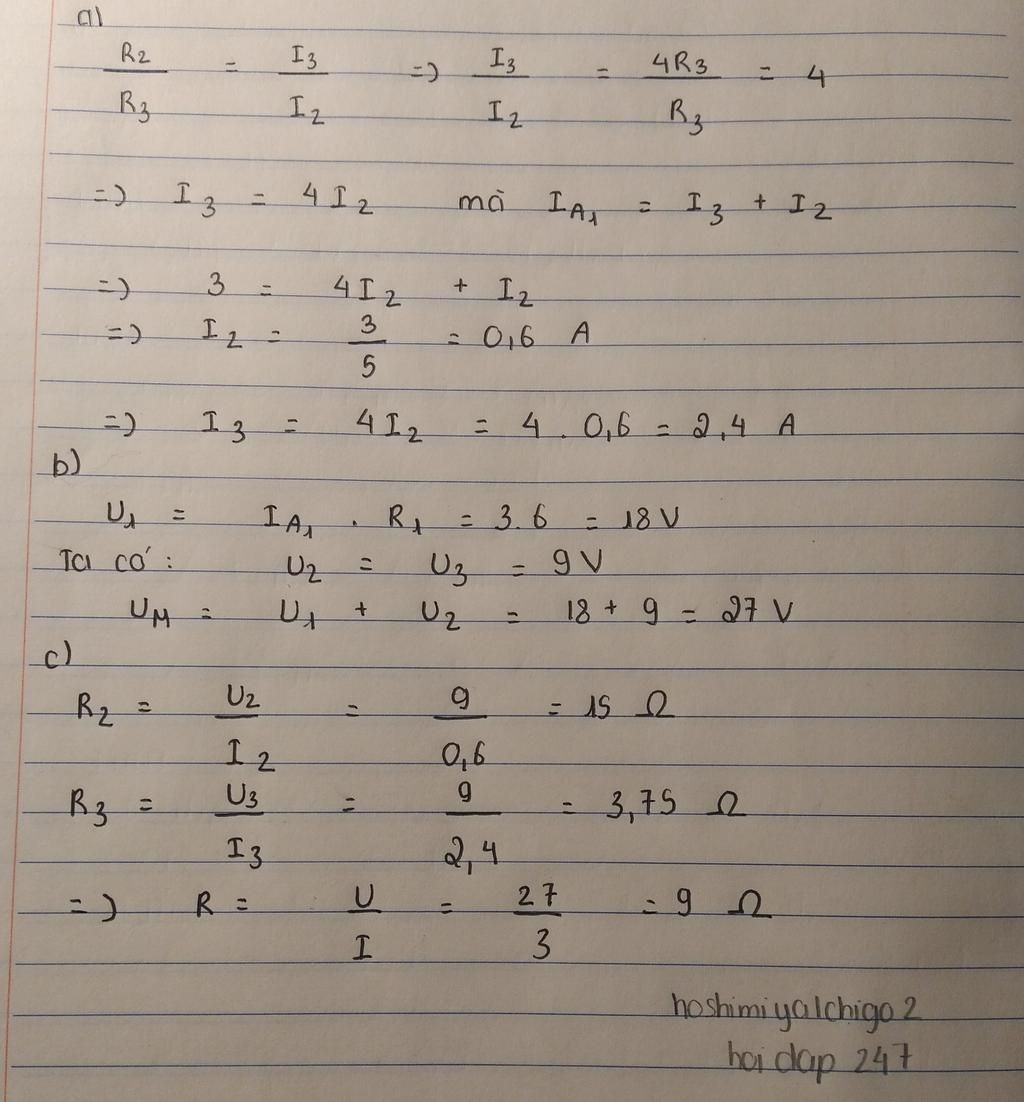 a)
R₂/R₃ = I₃/I₂ => I₃/I₂ = 4R₃/R₃ = 4
=> I₃ = 4I₂ mà I_A₁ = I₃ + I₂
=> 3 = 4I₂ + I₂
=> I₂ = 3/5 = 0,6 A
=> I₃ = 4I₂ = 4 . 0,6 = 2,4 A
b)
U₁ = I_A₁ . R₁ = 3.6 = 18 V
Ta có : U₂ = U₃ = 9 V
U_M = U₁ + U₂ = 18 + 9 = 27 V
c)
R₂ = U₂/I₂ = 9/0,6 = 15 Ω
R₃ = U₃/I₃ = 9/2,4 = 3,75 Ω
=> R = U/I = 27/3 = 9 Ω
hoshimiyaIchigo2
hoi dap 247